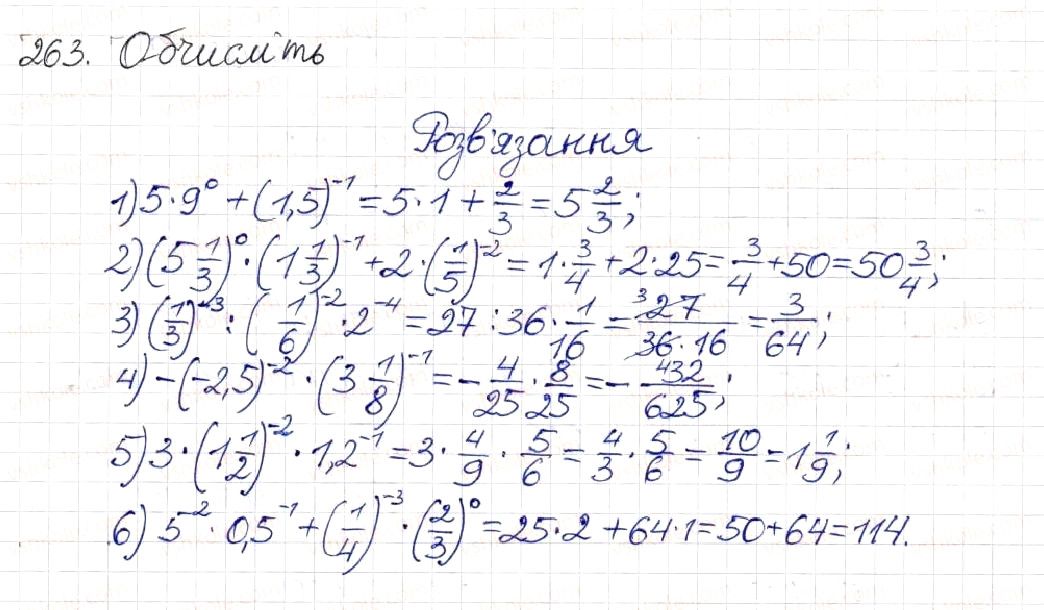 263. Обчисліть
Розв'язання
1) 5·9⁰ + (1,5)⁻¹ = 5·1 + 2/3 = 5 2/3;
2) (5 1/3)⁰·(1 1/3)⁻¹ + 2·(1/5)⁻² = 1·3/4 + 2·25 = 3/4 + 50 = 50 3/4;
3) (1/3)⁻³ : (1/6)⁻²·2⁻⁴ = 27 : 36·1/16 = ³27/36·16 = 3/64;
4) -(-2,5)⁻²·(3 1/8)⁻¹ = -4/25·8/25 = -432/625;
5) 3·(1 1/2)⁻²·1,2⁻¹ = 3·4/9·5/6 = 4/3·5/6 = 10/9 = 1 1/9;
6) 5⁻²·0,5⁻¹ + (1/4)⁻³·(2/3)⁰ = 25·2 + 64·1 = 50 + 64 = 114.